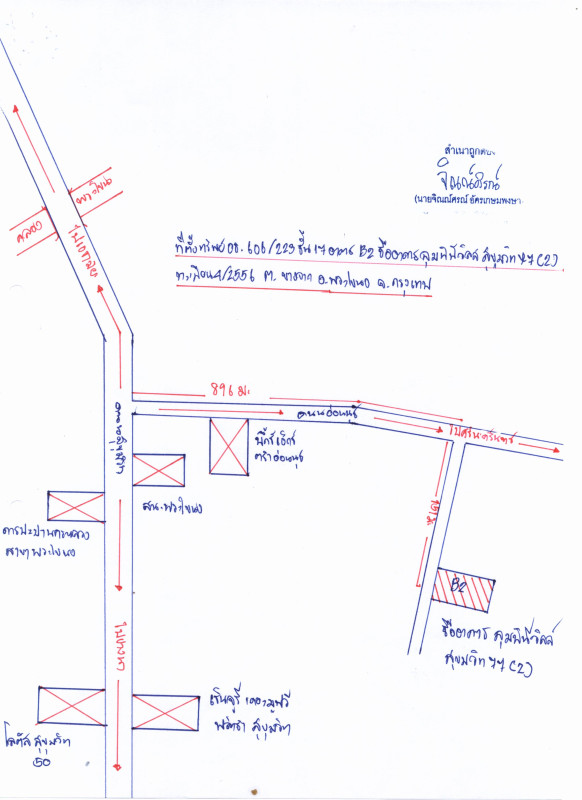 สำเนาถูกต้อง
(นายจิณณ์ศรณ์ อัครเกษมพงษา)
พระโขนง
คลอง
ไปเอกมัย
ที่ตั้งทรัพย์ อช. 606/229 ชั้น 17 อาคาร B2 ชื่ออาคาร ลุมพินีวิลล์ สุขุมวิท 77 (2)
ทะเบียน 4/2556 ต. บางจาก อ. พระโขนง จ. กรุงเทพ
896 ม.
ถนนอ่อนนุช
ไปศรีนครินทร์
ถนนสุขุมวิท
บิ๊กซีเอ็กซ์ตร้าอ่อนนุช
สน. พระโขนง
การประปานครหลวง
สาขา พระโขนง
B2
ชื่ออาคาร ลุมพินีวิลล์
สุขุมวิท 77 (2)
ไปบางนา
เซ็นจูรี่ เดอะมูฟวี่
พลาซ่า สุขุมวิท
โลตัส สุขุมวิท
50